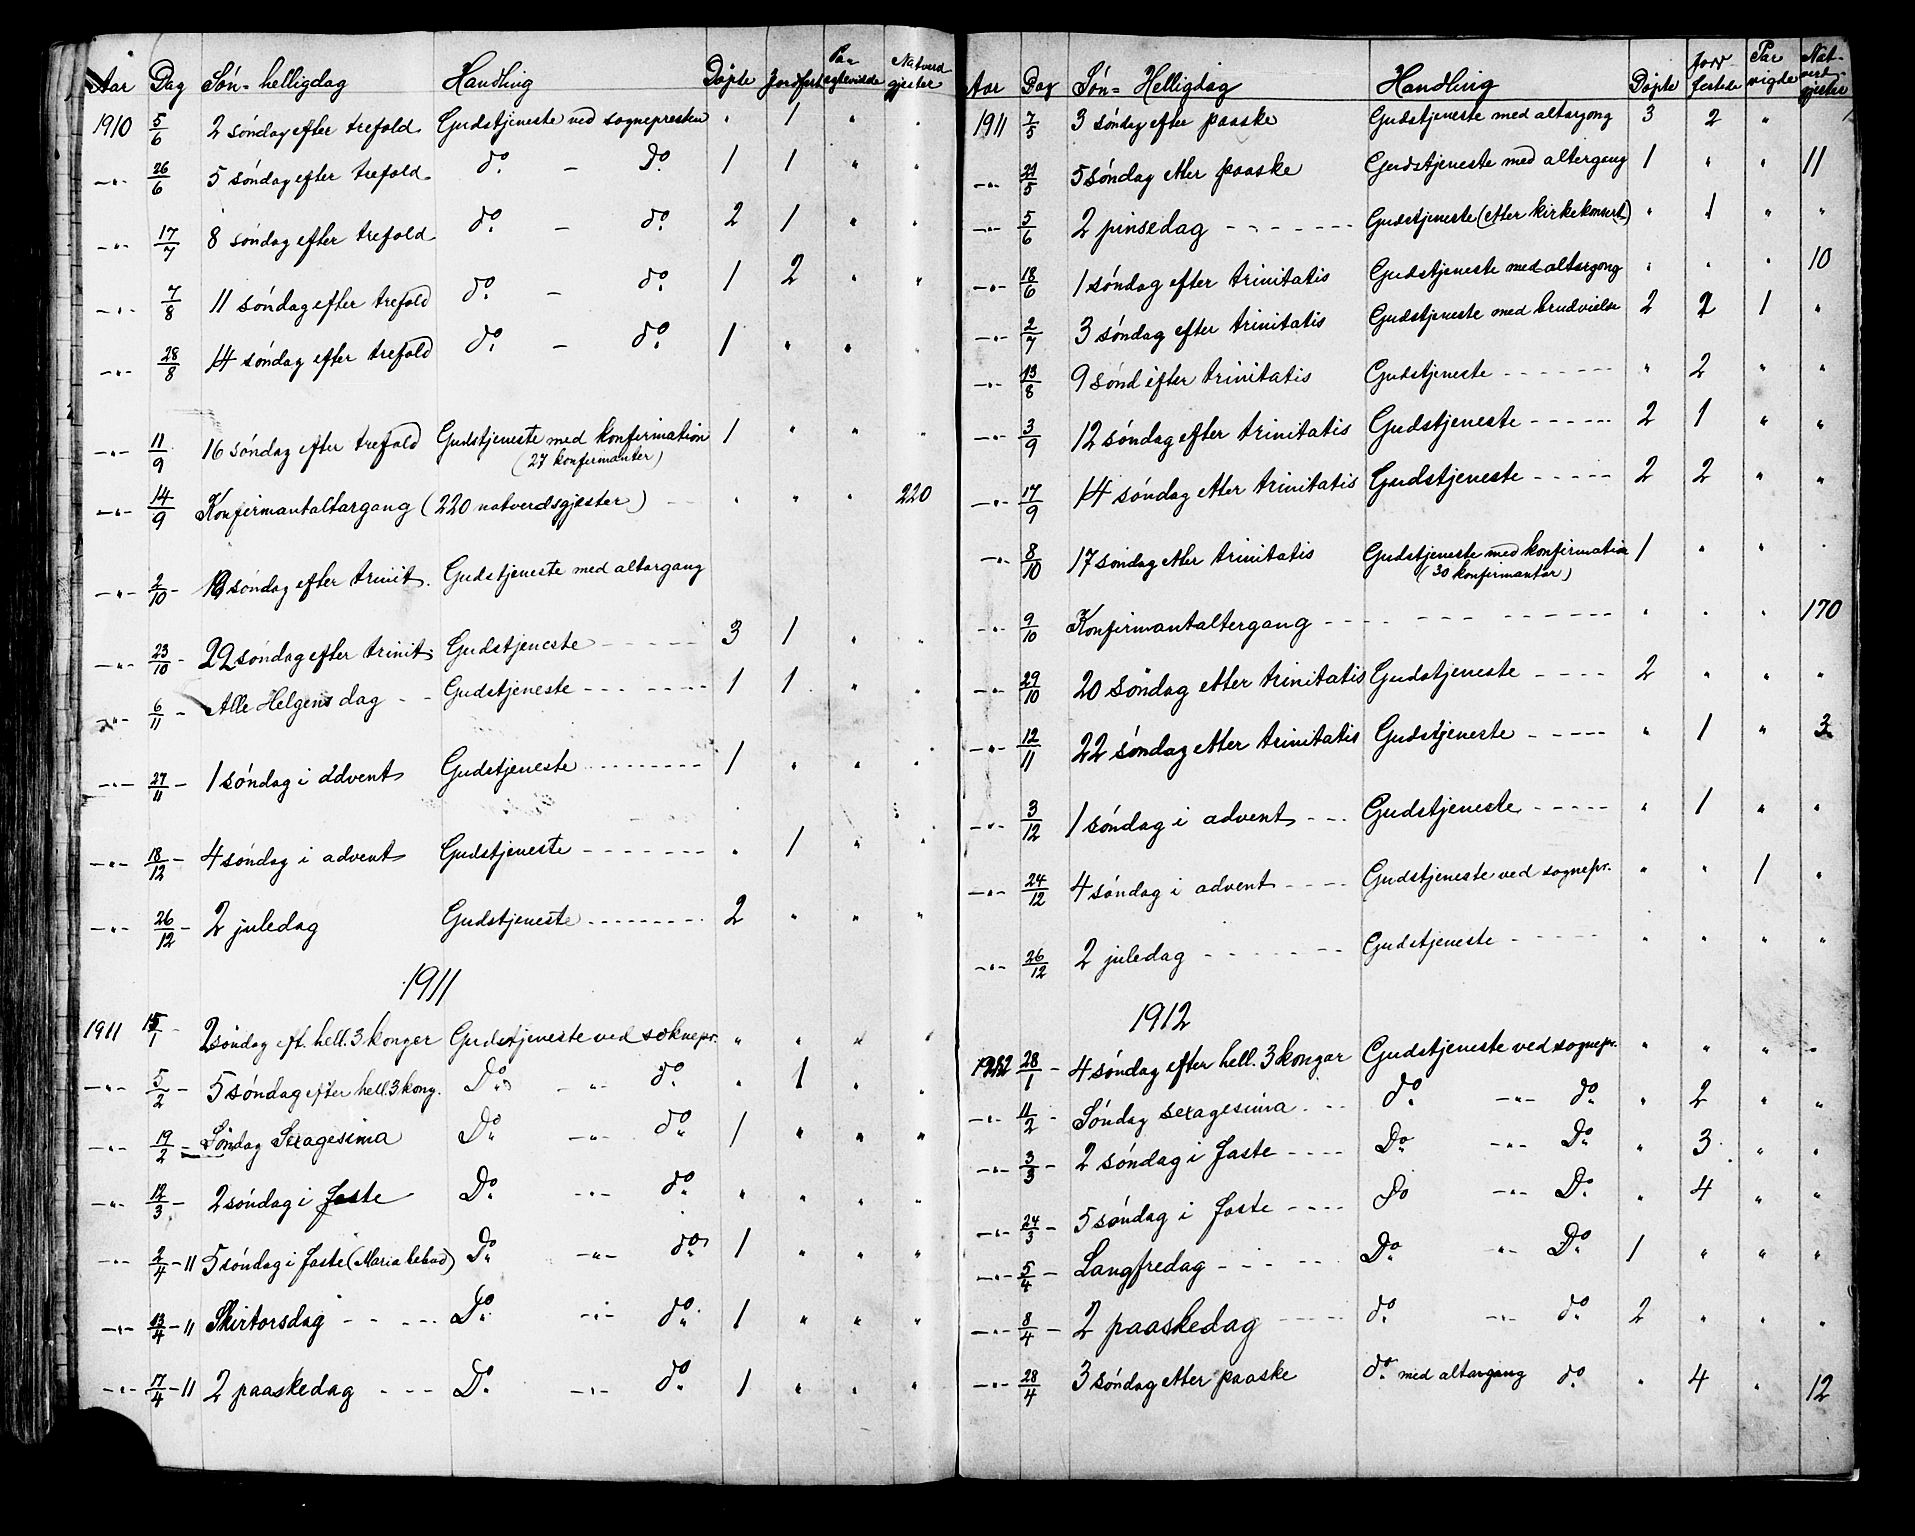 Aar Dag Søn- helligdag Handling Døpte Jordfest Par Natverd gjester
1910 5/6 2 søndag efter trefold. Gudstjeneste ved sognepresten " 1 " "
–"– 26/6 5 søndag efter trefold. do – Do. 1 1 " "
–"– 17/7 8 søndag efter trefold do – do 2 1 " "
–"– 7/8 11 søndag efter trefold do – do 1 2 " "
–"– 28/8 14 søndag efter trefold do – do 1 " " "
–"– 11/9 16 søndag efter trefold Gudstjeneste med konfirmation 1 " " "
(27 konfirmanter)
–"– 14/9 Konfirmantaltargang (220 natverdsgjester) " " " 220
–"– 2/10 – 19 søndag efter trinit. Gudstjeneste med altargang
–"– 23/10 – 22 søndag efter trinit. Gudstjeneste 3 1 " "
–"– 6/11 – Alle Helgens dag – – Gudstjeneste 1 1 " "
–"– 27/11 – 1 søndag i advent Gudstjeneste 1 " " "
–"– 18/12 – 4 søndag i advent Gudstjeneste " 1 " "
–"– 26/12 – 2 juledag Gudstjeneste 2 " " "
1911
1911 15/1 – 2 søndag eft. hell. 3 konger Gudstjeneste ved soknepr. " " " "
–"– 5/2 – 5 søndag efter hell. 3 kong. Do –"– do " 1 " "
–"– 19/2 – Søndag Sexagesima Do –"– do 1 " " "
–"– 12/3 – 2 søndag i faste Do –"– do " " " "
–"– 2/4 – 11 5 søndag i faste (Maria bebud) Do –"– do 1 " " "
–"– 13/4 – 11 Skirtorsdag Do –"– do 1 " " "
–"– 17/4 – 11 2 paaskedag Do –"– do 1 " " "
Aar Dag Søn- Helligdag Handling Døpte Jordfestede Par vigde Natverdgjester
1911 7/5 3 søndag efter paaske Gudstjeneste med altargong 3 2 "
–"– 21/5 5 søndag etter paaske Gudstjeneste med altergang 1 " " 11
–"– 5/6 2 pinsedag Gudstjeneste (etter kirkekonsert) " 1 " "
–"– 18/6 1 søndag efter trinitatis Gudstjeneste med altargong " " " 10
–"– 2/7 3 søndag efter trinitatis Gudstjeneste med brudvielse 2 2 1 "
–"– 13/8 9 sønd efter trinitatis Gudstjeneste " 2 " "
–"– 3/9 12 søndag efter trinitatis Gudstjeneste 2 1 " "
–"– 17/9 14 søndag etter trinitatis Gudstjeneste 2 2 " "
–"– 8/10 17 søndag etter trinitatis Gudstjeneste med konfirmation 1 " " "
(30 konfirmantar)
–"– 9/10 Konfirmantaltergang " " " 170
–"– 29/10 20 søndag etter trinitatis Gudstjeneste 2 " " "
–"– 12/11 22 søndag etter trinitatis Gudstjeneste " 1 " 3
–"– 3/12 1 søndag i advent Gudstjeneste " 1 " "
–"– 24/12 4 søndag i advent Gudstjeneste ved sognepr. " " 1 "
–"– 26/12 2 juledag Gudstjeneste " " " "
1912
1912 28/1 – 4 søndag efter hell. 3 kongar Gudstjeneste ved sognepr. " " " "
–"– 11/2 – Søndag sexagesima do –"– do " 2 " "
–"– 3/3 – 2 søndag i faste Do –"– Do " 3 " "
–"– 24/3 – 5 søndag i faste do –"– Do " 4 " "
–"– 5/4 – Langfredag Do –"– Do 1 " " "
–"– 8/4 – 2 paaskedag do –"– do 2 " " "
–"– 28/4 3 søndag etter paaske do med altargang do " 4 " 12